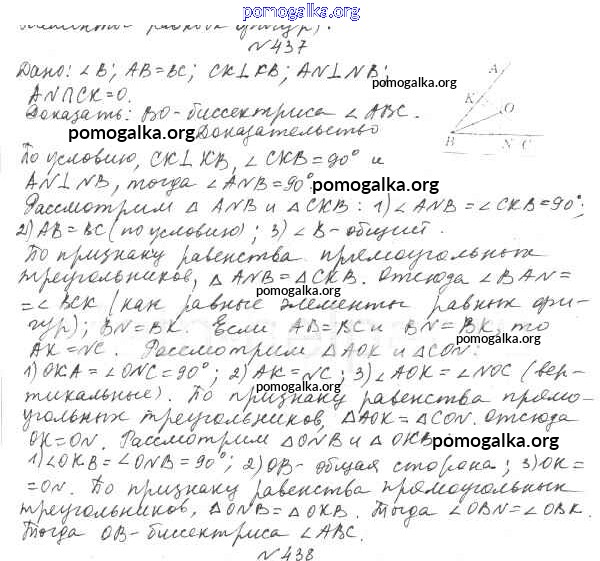 pomogalka.org
элементов равных фигур).
№437
Дано: ∠B; AB=BC; CK⊥KB; AN⊥NB;
pomogalka.org
AN∩CK=O.
Доказать: BO-биссектриса ∠ABC.
pomogalka.org Доказательство
A
K
O
B N C
pomogalka.org
По условию, CK⊥KB, ∠CKB=90° и
AN⊥NB, тогда ∠ANB=90°. pomogalka.org
Рассмотрим △ANB и △CKB: 1)∠ANB=∠CKB=90°;
pomogalka.org
2)AB=BC(по условию); 3)∠B-общий.
По признаку равенства прямоугольных
треугольников, △ANB=△CKB. Отсюда ∠BAN=
pomogalka.org
=∠BCK (как равные элементы равных фи-
гур); BN=BK. Если AB=BC и BN=BK, то
AK=NC. Рассмотрим △AOK и △CON:
pomogalka.org
1)OKA=∠ONC=90°; 2)AK=NC; 3)∠AOK=∠NOC (вер-
pomogalka.org
тикальные). По признаку равенства прямо-
угольных треугольников, △AOK=△CON. Отсюда
OK=ON. Рассмотрим △ONB и △OKB pomogalka.org
1)∠OKB=∠ONB=90°; 2)OB-общая сторона; 3)OK=
pomogalka.org
=ON. По признаку равенства прямоугольных
треугольников, △ONB=△OKB. Тогда ∠OBN=∠OBK.
Тогда OB-биссектриса ∠ABC.
pomogalka.org
№438